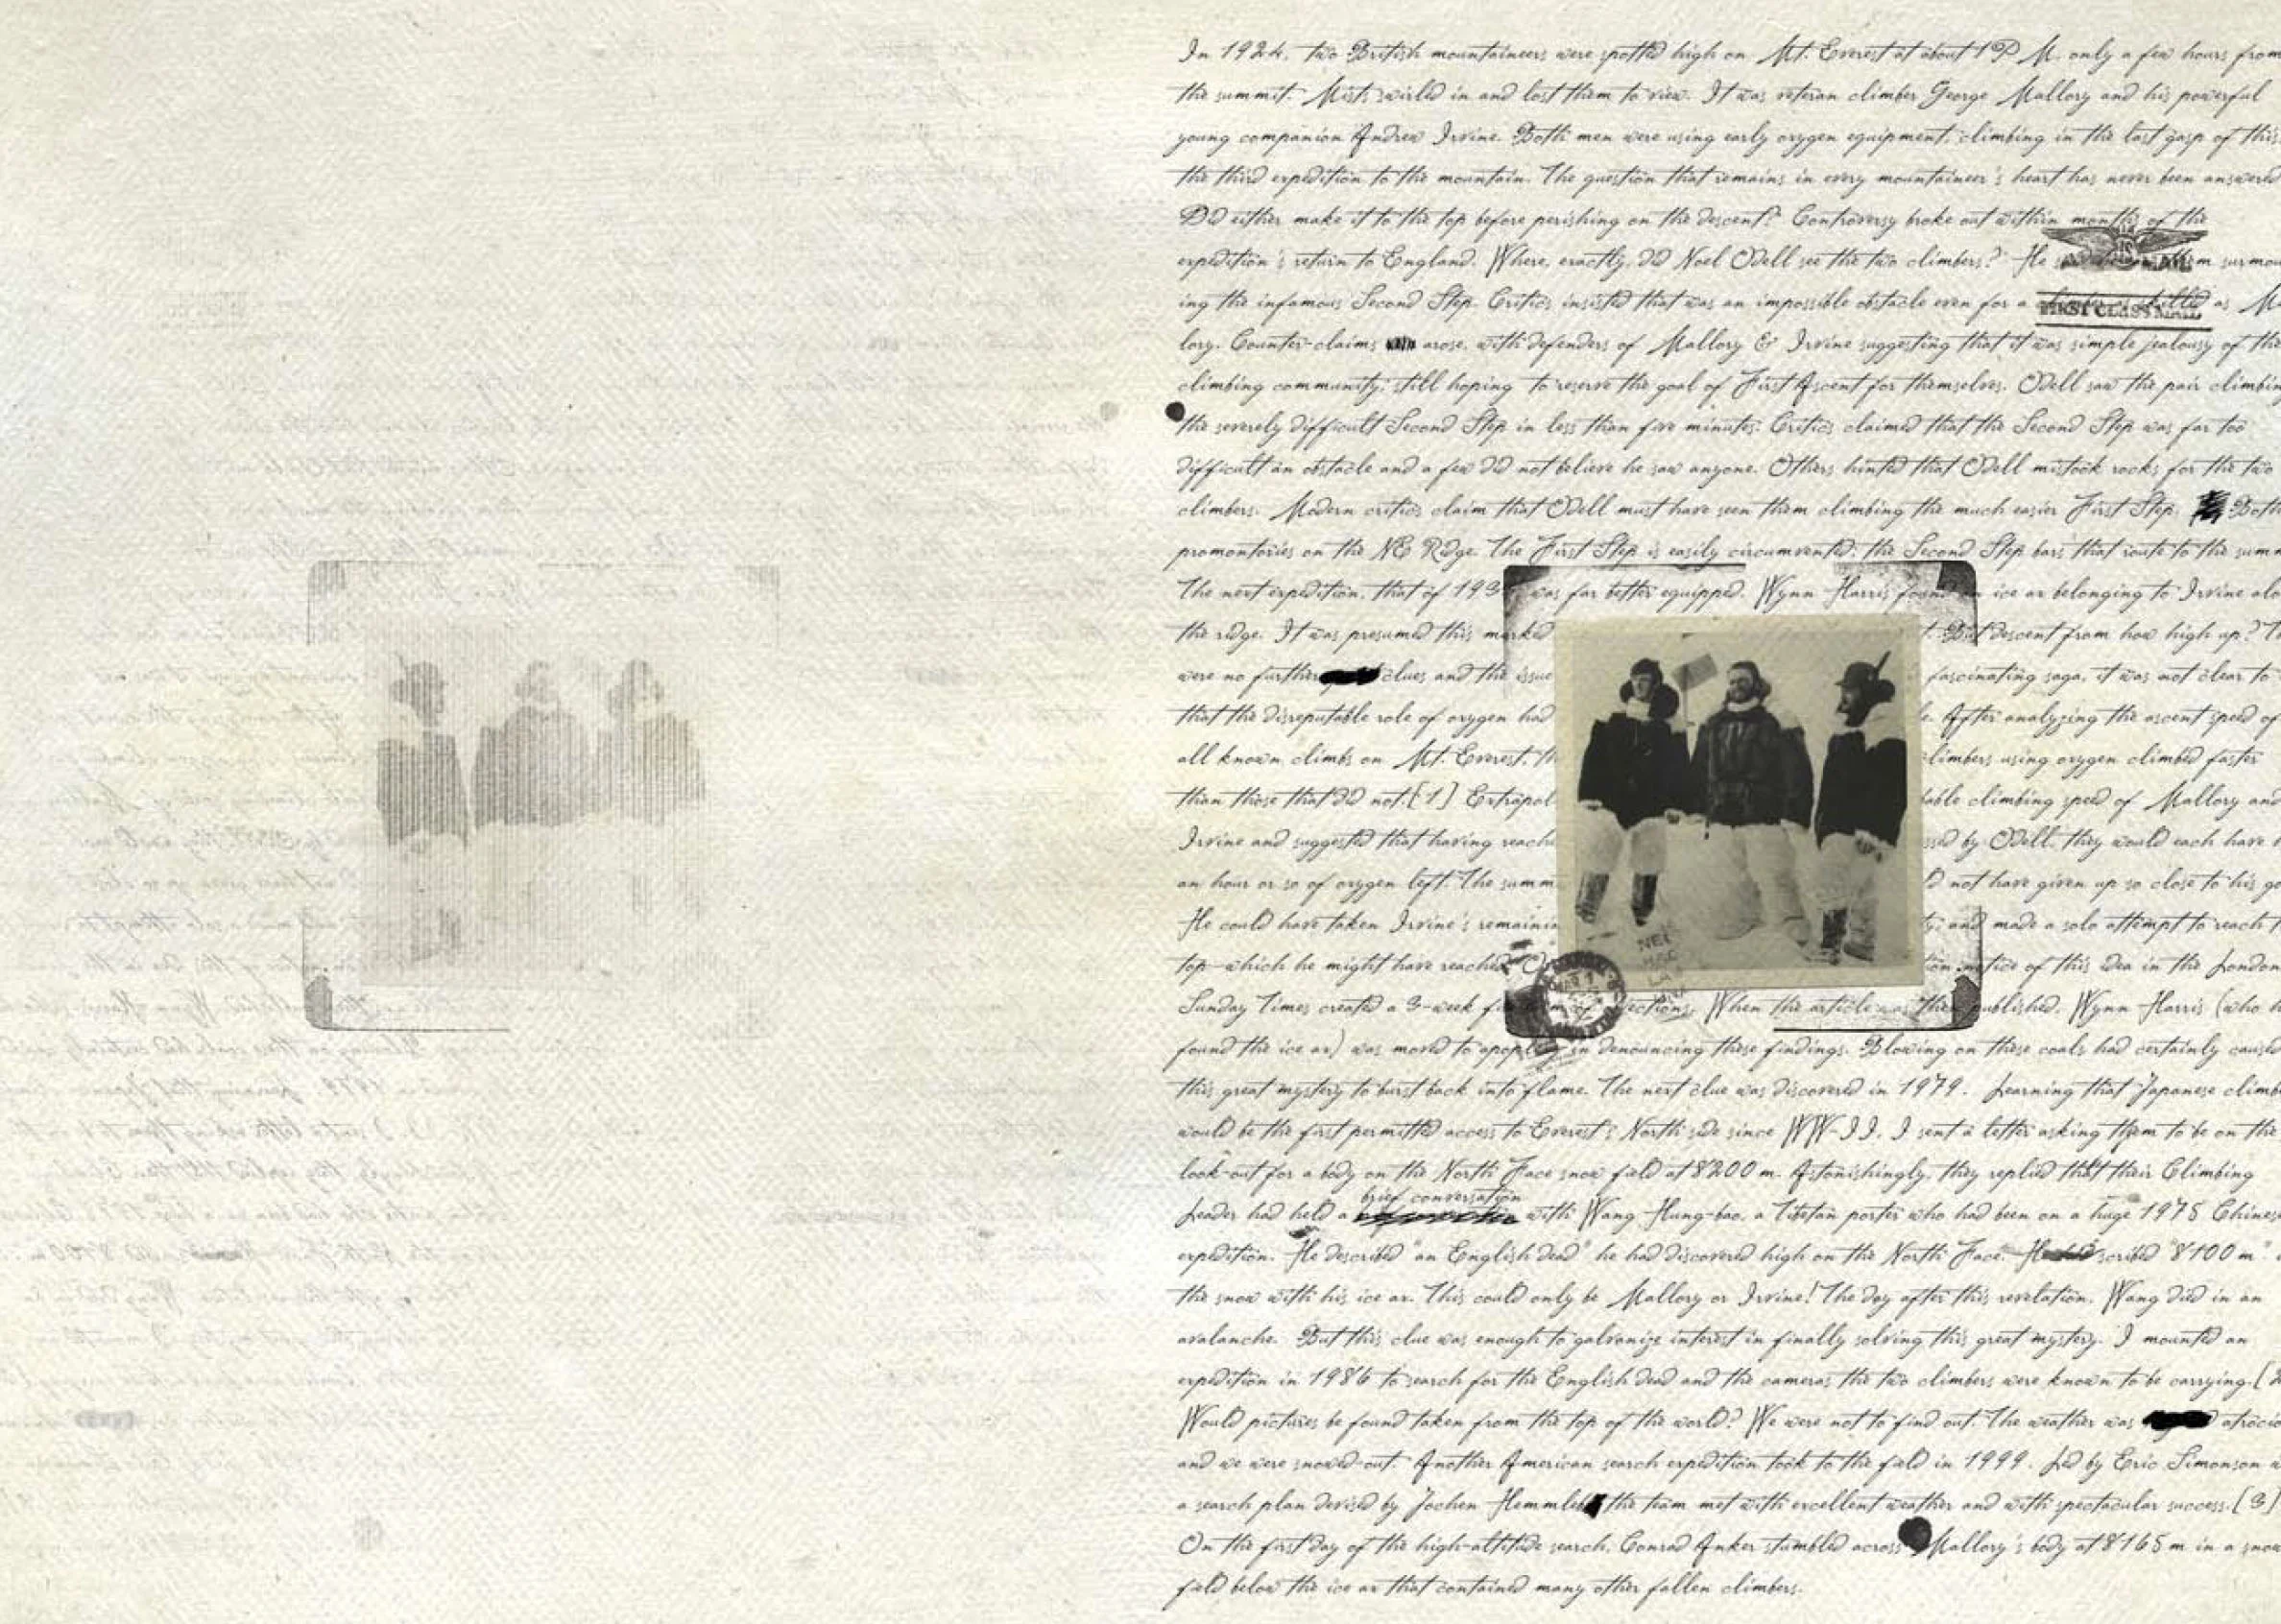 In 1924, two British mountaineers were spotted high on Mt. Everest at about 1 P M. only a few hours from
the summit. Mists swirled in and lost them to view. It was veteran climber George Mallory and his powerful
young companion Andrew Irvine. Both men were using early oxygen equipment, climbing in the last gasp of this,
the third expedition to the mountain. The question that remains in every mountaineer's heart has never been answered
Did either make it to the top before perishing on the descent? Controversy broke out within months of the
expedition's return to England. Where, exactly, did Noel Odell see the two climbers? He
ing the infamous Second Step. Critics insisted that was an impossible obstacle even for a as
FIRST CLASS MAIL
lory. Counter-claims arose, with defenders of Mallory & Irvine suggesting that it was simple jealousy of the
climbing community; still hoping to reserve the goal of First Ascent for themselves. Odell saw the pair climbing
the severely difficult Second Step in less than five minutes. Critics claimed that the Second Step was far too
difficult an obstacle and a few did not believe he saw anyone. Others hinted that Odell mistook rocks for the two
climbers. Modern critics claim that Odell must have seen them climbing the much easier First Step. Both
promontories on the NE Ridge. The First Step is easily circumvented; the Second Step bars that route to the summ
The next expedition, that of 193 was far better equipped. Wynn Harris found an ice ax belonging to Irvine alo
the ridge. It was presumed this marked But descent from how high up?
were no further clues and the issue fascinating saga, it was not clear to
that the disreputable role of oxygen had After analyzing the ascent speed of
all known climbs on Mt. Everest, climbers using oxygen climbed faster
than those that did not.[1] Extrapol climbing speed of Mallory and
Irvine and suggested that having reach by Odell, they would each have
an hour or so of oxygen left. The summ not have given up so close to his go
He could have taken Irvine's remainin and made a solo attempt to reach
top—which he might have reached. notice of this idea in the London
Sunday Times created a 3-week When the article was then published, Wynn Harris (who
found the ice ax) was moved to in denouncing these findings. Blowing on these coals had certainly caused
this great mystery to burst back into flame. The next clue was discovered in 1979. Learning that Japanese climb
would be the first permitted access to Everest's North side since WW-II, I sent a letter asking them to be on the
look-out for a body on the North Face snow field at 8200 m. Astonishingly, they replied that their Climbing
brief conversation
Leader had held a with Wang Hung-bao, a Tibetan porter who had been on a huge 1975 Chinese
expedition. He described "an English dead" he had discovered high on the North Face. He scribed "8100 m"
the snow with his ice ax. This could only be Mallory or Irvine! The day after this revelation, Wang died in an
avalanche. But this clue was enough to galvanize interest in finally solving this great mystery. I mounted an
expedition in 1986 to search for the English dead and the cameras the two climbers were known to be carrying.
Would pictures be found taken from the top of the world? We were not to find out. The weather was atrocio
and we were snowed-out. Another American search expedition took to the field in 1999. Led by Eric Simonson
a search plan devised by Jochen Hemmleb the team met with excellent weather and with spectacular success.[3]
On the first day of the high-altitude search, Conrad Anker stumbled across Mallory's body at 8165 m in a snow
field below the ice ax that contained many other fallen climbers.